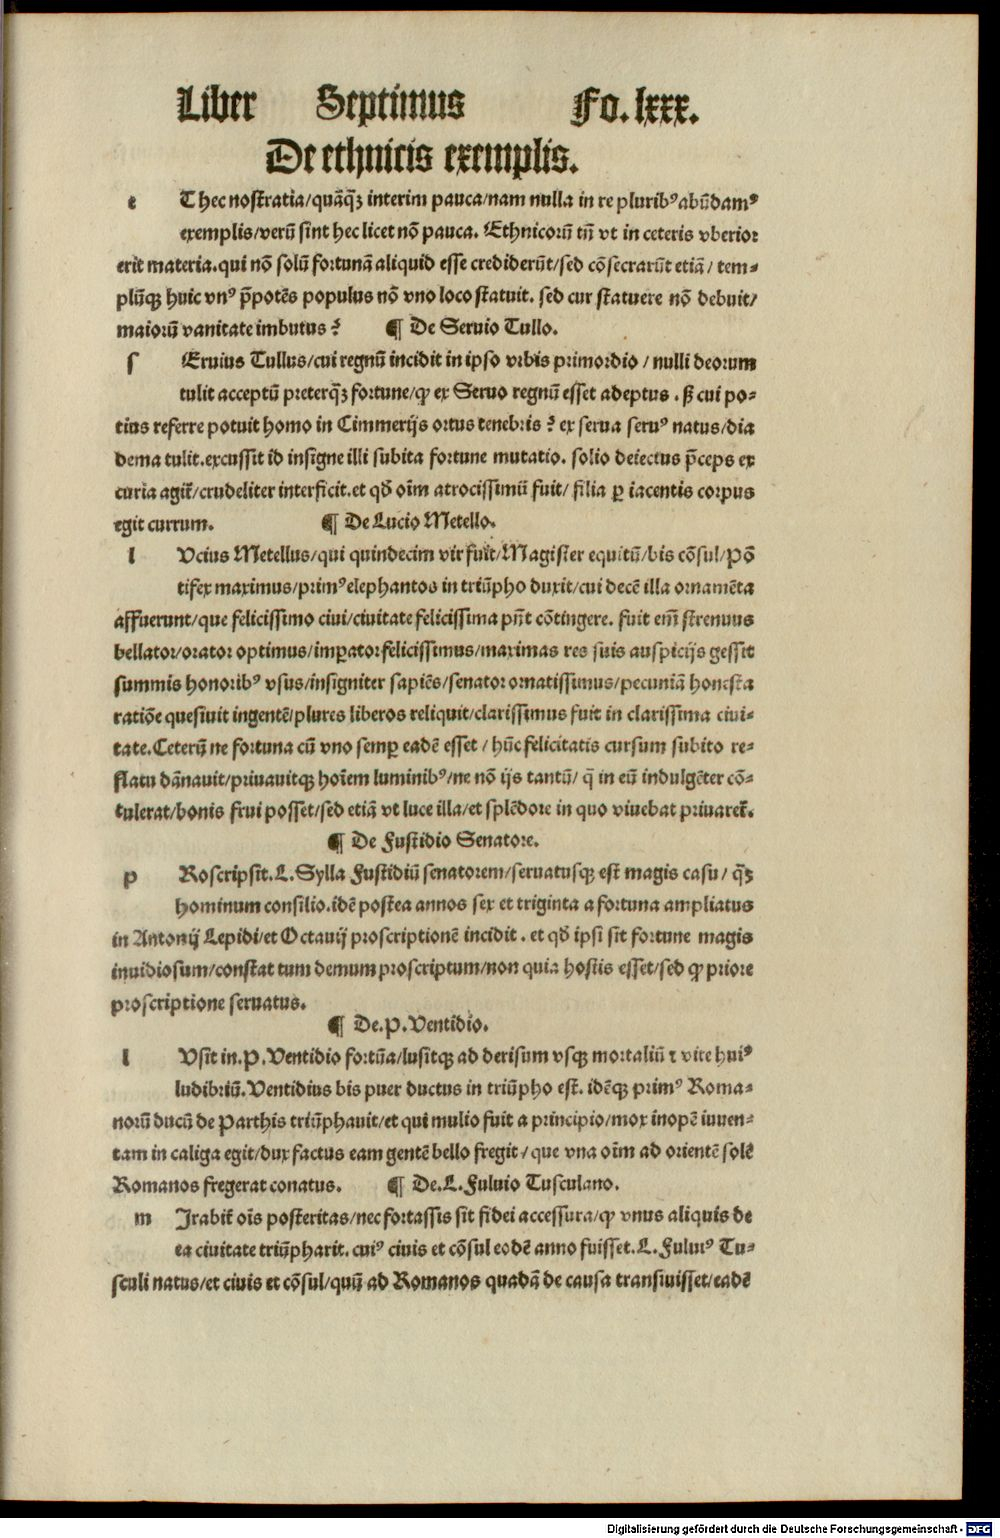 Liber Septimus Fo. lxxx.
De ethnicis exemplis.
e Thec nostratia/quãq̃ʒ interim pauca/nam nulla in re pluribꝰ abũdamꝰ
exemplis/verũ sint hec licet nõ pauca. Ethnicorũ tñ vt in ceteris vberior
erit materia. qui nõ solũ fortunã aliquid esse crediderũt/sed cõsecrarũt etiã/ tem-
plũqʒ huic vnꝰ p̃potẽs populus nõ vno loco statuit. sed cur statuere nõ debuit/
maiorũ vanitate imbutus? ¶ De Seruio Tullo.
s Eruius Tullus/cui regnũ incidit in ipso vrbis primordio / nulli deorum
tulit acceptũ preterq̃ʒ fortune/ꝙ ex Seruo regnũ esset adeptus . sʒ cui po-
tius referre potuit homo in Cimmerijs ortus tenebris? ex serua seruꝰ natus/dia
dema tulit. excussit id insigne illi subita fortune mutatio. solio deiectus p̃ceps ex
curia agit̃/crudeliter interficit. et qđ oĩm atrocissimũ fuit/ filia ꝑ iacentis corpus
egit currum. ¶ De Lucio Metello.
l Vcius Metellus/qui quindecim vir fuit/Magister equitũ/bis cõsul/Põ
tifex maximus/primꝰ elephantos in triũpho duxit/cui decẽ illa ornamẽta
affuerunt/que felicissimo ciui/ciuitate felicissima pñt cõtingere. fuit em̃ strenuus
bellator/orator optimus/imꝑator felicissimus/maximas res suis auspicijs gessit
summis honoribꝰ vsus/insigniter sapiẽs/senator ornatissimus/pecuniã honesta
ratiõe quesiuit ingentẽ/plures liberos reliquit/clarissimus fuit in clarissima ciui-
tate. Ceterũ ne fortuna cũ vno semꝑ eadẽ esset / hũc felicitatis cursum subito re-
flatu dãnauit/priuauitqʒ hoĩem luminibꝰ/ne nõ ijs tantũ/ q̃ in eũ indulgẽter cõ-
tulerat/bonis frui posset/sed etiã vt luce illa/et splẽdore in quo viuebat priuaret̃.
¶ De Fustidio Senatore.
p Roscripsit. L. Sylla Fustidiũ senatorem/seruatusqʒ est magis casu/ q̃ʒ
hominum consilio. idẽ postea annos sex et triginta a fortuna ampliatus
in Antonij Lepidi/et Octauij proscriptionẽ incidit . et qđ ipsi sit fortune magis
inuidiosum/constat tum demum proscriptum/non quia hostis esset/sed ꝙ priore
proscriptione seruatus.
¶ De. P. Ventidio.
l Vsit in. P. Ventidio fortũa/lusitqʒ ad derisum vsqʒ mortaliũ ⁊ vite huiꝰ
ludibriũ. Ventidius bis puer ductus in triũpho est. idẽqʒ primꝰ Roma-
norũ ducũ de Parthis triũphauit/et qui mulio fuit a principio/mox inopẽ iuuen-
tam in caliga egit/dux factus eam gentẽ bello fregit/ que vna oĩm ad orientẽ solẽ
Romanos fregerat conatus. ¶ De. L. Fuluio Tusculano.
m Irabit̃ oĩs posteritas/nec fortassis sit fidei accessura/ꝙ vnus aliquis de
ea ciuitate triũpharit. cuiꝰ ciuis et cõsul eodẽ anno fuisset. L. Fuluiꝰ Tu-
sculi natus/et ciuis et cõsul/quũ ad Romanos quadã de causa transiuisset/eadẽ
Digitalisierung gefördert durch die Deutsche Forschungsgemeinschaft - DFG